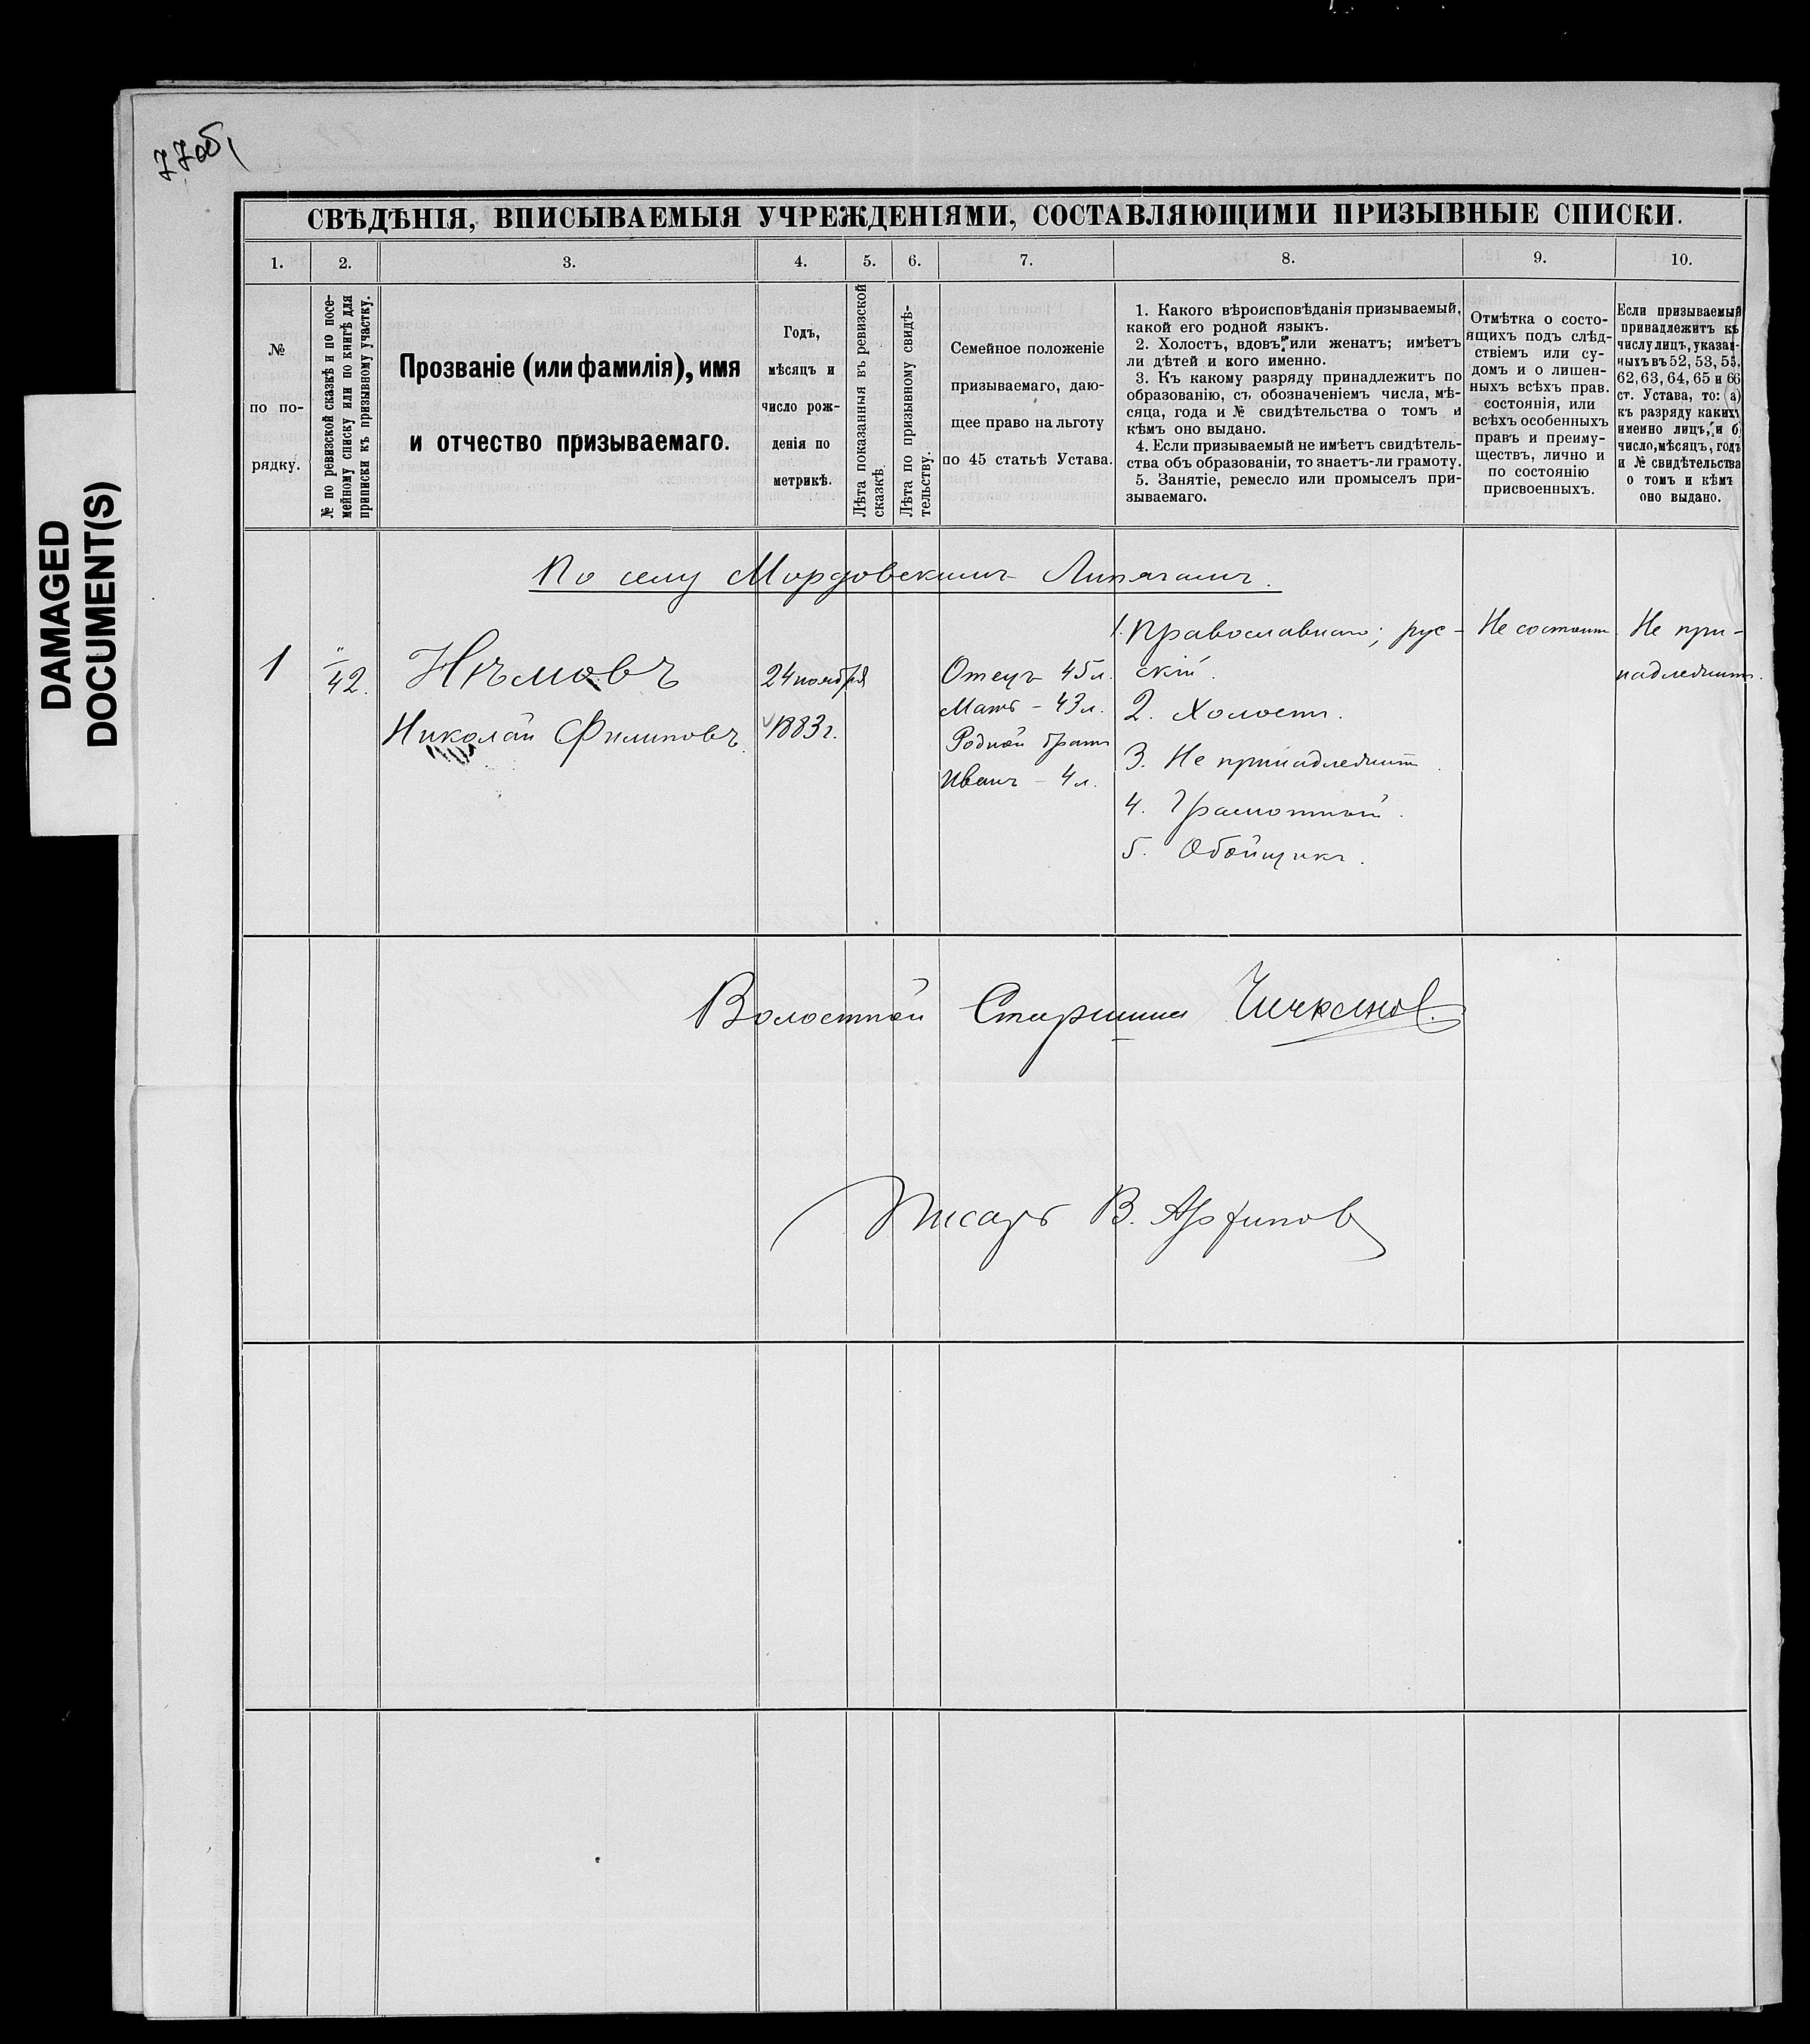 77об,
DAMAGED
DOCUMENT(S)
СВѢДѢНІЯ, ВПИСЫВАЕМЫЯ УЧРЕЖДЕНІЯМИ, СОСТАВЛЯЮЩИМИ ПРИЗЫВНЫЕ СПИСКИ.
1. 2. 3. 4. 5. 6. 7. 8. 9. 10.
№
по по-
рядку.
№ по ревизской сказкѣ и по посе-
мейному списку или по книгѣ для
приписки къ призывному участку.
Прозваніе (или фамилія), имя
и отчество призываемаго.
Годъ,
мѣсяцъ и
число рож-
денія по
метрикѣ.
Лѣта показанныя въ ревизской
сказкѣ.
Лѣта по призывному свидѣ-
тельству.
Семейное положеніе
призываемаго, даю-
щее право на льготу
по 45 статьѣ Устава.
1. Какого вѣроисповѣданія призываемый,
какой его родной языкъ.
2. Холостъ, вдовъ, или женатъ; имѣетъ
ли дѣтей и кого именно.
3. Къ какому разряду принадлежитъ по
образованію, съ обозначеніемъ числа, мѣ-
сяца, года и № свидѣтельства о томъ и
кѣмъ оно выдано.
4. Если призываемый не имѣетъ свидѣтель-
ства объ образованіи, то знаетъ-ли грамоту.
5. Занятіе, ремесло или промыселъ при-
зываемаго.
Отмѣтка о состо-
ящихъ подъ слѣд-
ствіемъ или су-
домъ и о лишен-
ныхъ всѣхъ прав.
состоянія, или
всѣхъ особенныхъ
правъ и преиму-
ществъ, лично и
по состоянію
присвоенныхъ.
Если призываемый
принадлежитъ къ
числу лицъ, указан-
ныхъ въ 52, 53, 55,
62, 63, 64, 65 и 66
ст. Устава, то: а)
къ разряду какихъ
именно лицъ, и б)
число, мѣсяцъ, годъ
и № свидѣтельства
о томъ и кѣмъ
оно выдано.
По селу Мордовскимъ Липягамъ.
1
"
42.
Нѣмовъ
Николай Филиповъ.
24 ноября
1883 г.
Отецъ 45 л.
Мать – 43 л.
Родной братъ
Иванъ – 4 л.
1. Православнаго; рус-
скій.
2. Холостъ.
3. Не принадлежитъ.
4. Грамотный.
5. Обойщикъ.
Не состоитъ
Не при-
надлежитъ.
Волостной Старшина Чичканов.
Писарь В. Архипов